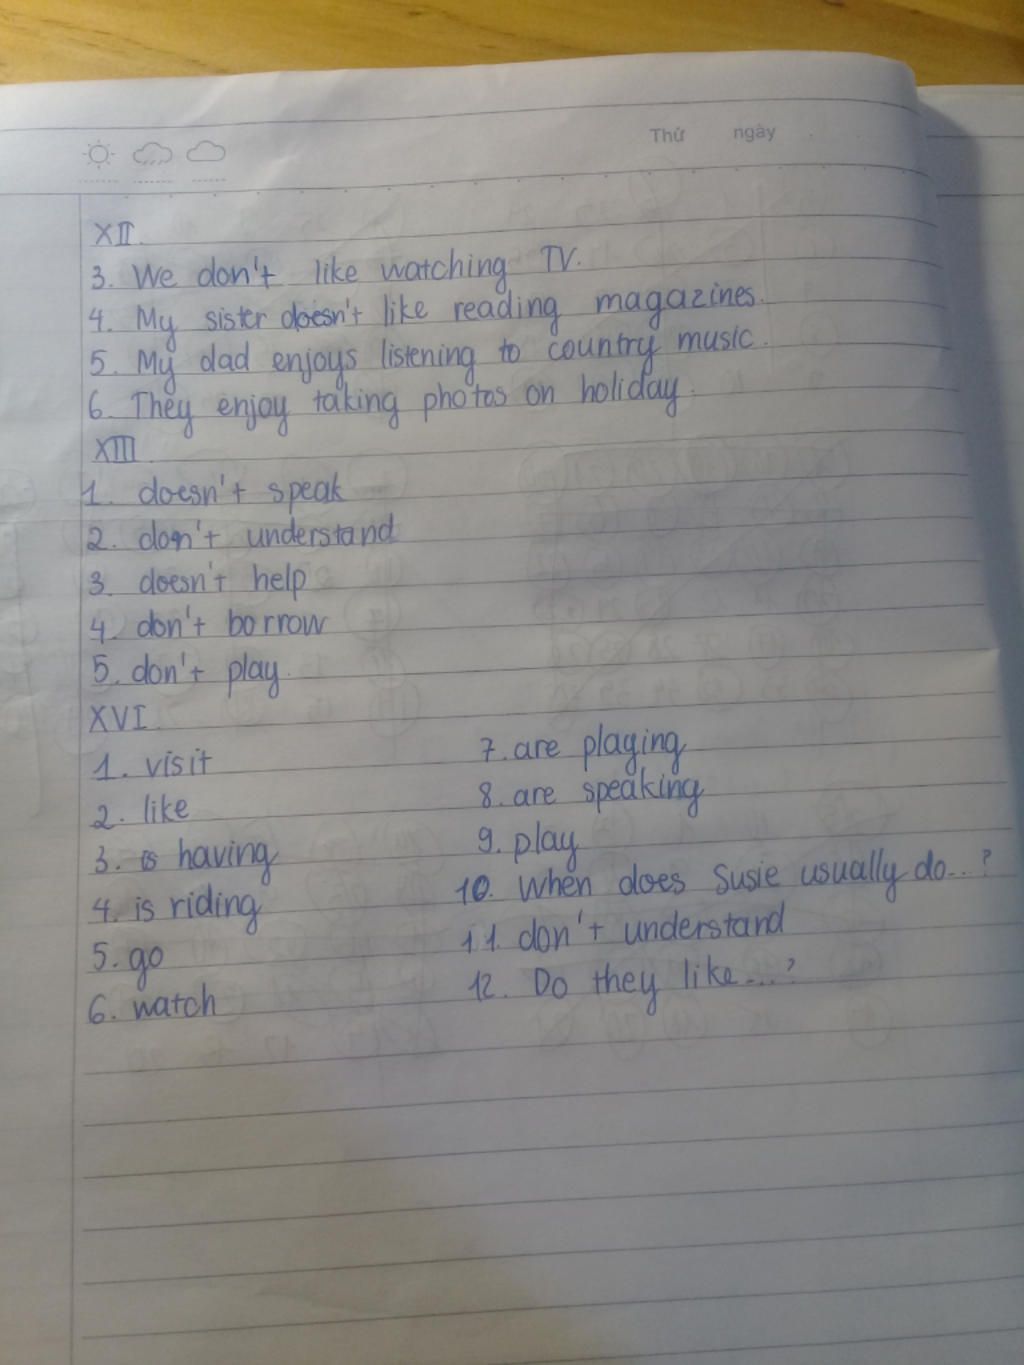 Thứ ngày
XII.
3. We don't like watching TV.
4. My sister doesn't like reading magazines.
5. My dad enjoys listening to country music.
6. They enjoy taking photos on holiday.
XIII
1. doesn't speak
2. don't understand
3. doesn't help
4. don't borrow
5. don't play.
XVI
1. visit
2. like
3. is having
4. is riding
5. go
6. watch
7. are playing
8. are speaking
9. play
10. When does Susie usually do...?
11. don't understand
12. Do they like....?